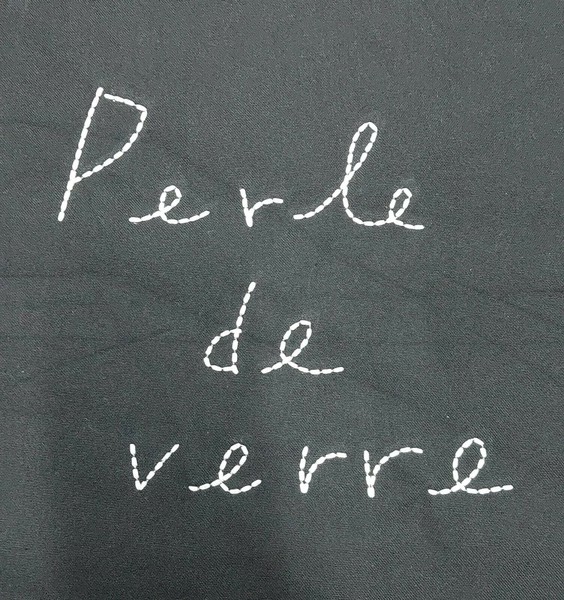 Perle
de
verre